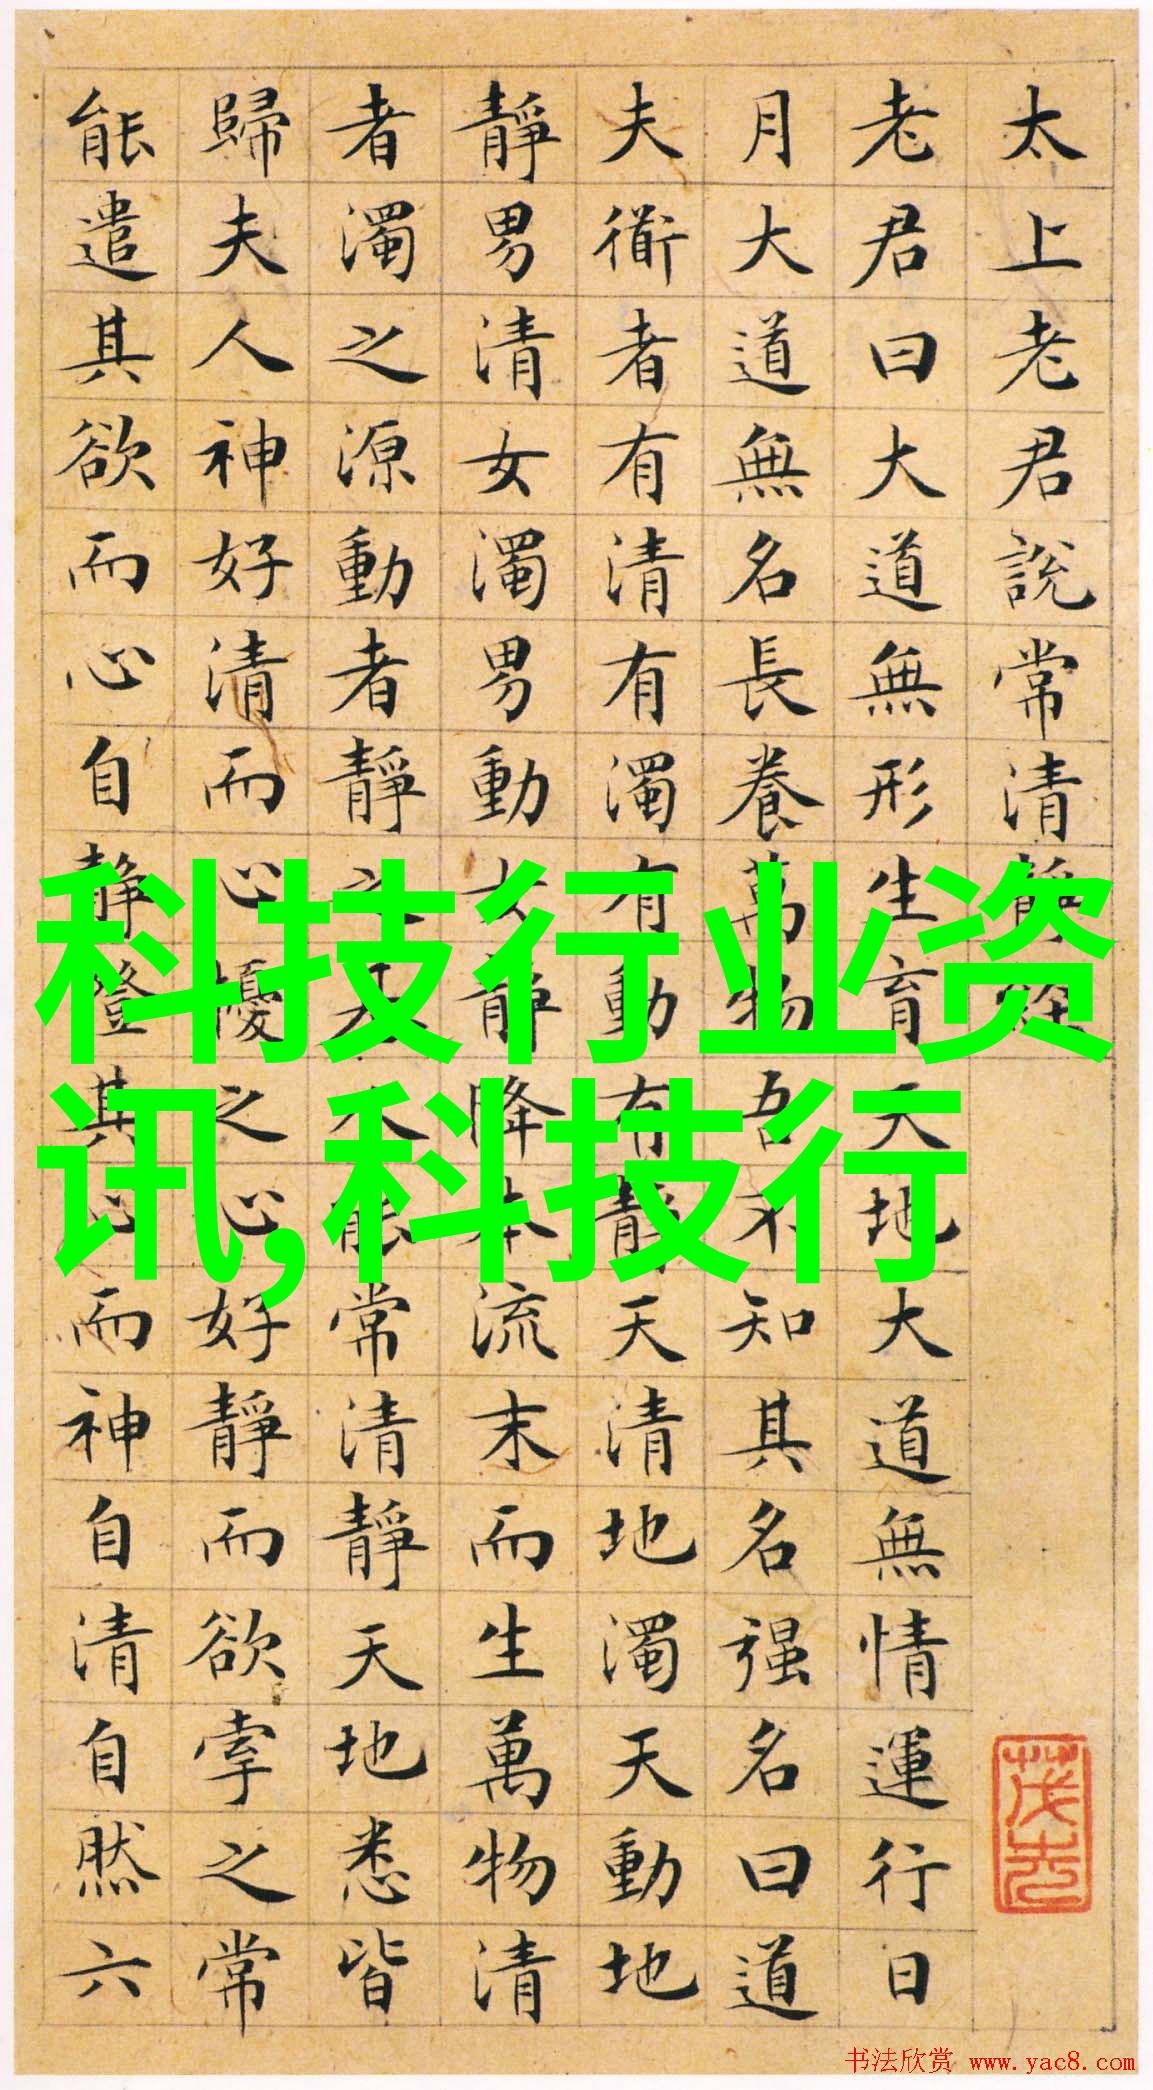 太上老君說常清靜經
老君曰大道無形生育天地大道無情運行日
月大道無名長養萬物吾不知其名强名曰道
夫衜者有清有濁有動有靜天清地濁天動地
靜男清女濁男動女靜降本流末而生萬物清
者濁之源動者靜之基人能常清靜天地悉皆
歸夫人神好清而心擾之心好靜而欲牽之常
能遣其欲而心自静澄其心而神自清自然六
科技行业资
讯,科技行
书法欣赏 www.yac8.com